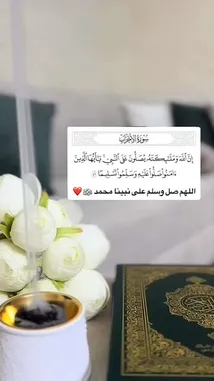 سُورَةُ الأَحْزَابِ
إِنَّ ٱللَّهَ وَمَلَٰٓئِكَتَهُۥ يُصَلُّونَ عَلَى ٱلنَّبِىِّ يَٰٓأَيُّهَا ٱلَّذِينَ
ءَامَنُوا۟ صَلُّوا۟ عَلَيْهِ وَسَلِّمُوا۟ تَسْلِيمًا
اللهم صل وسلم على نبينا محمد ﷺ ❤️